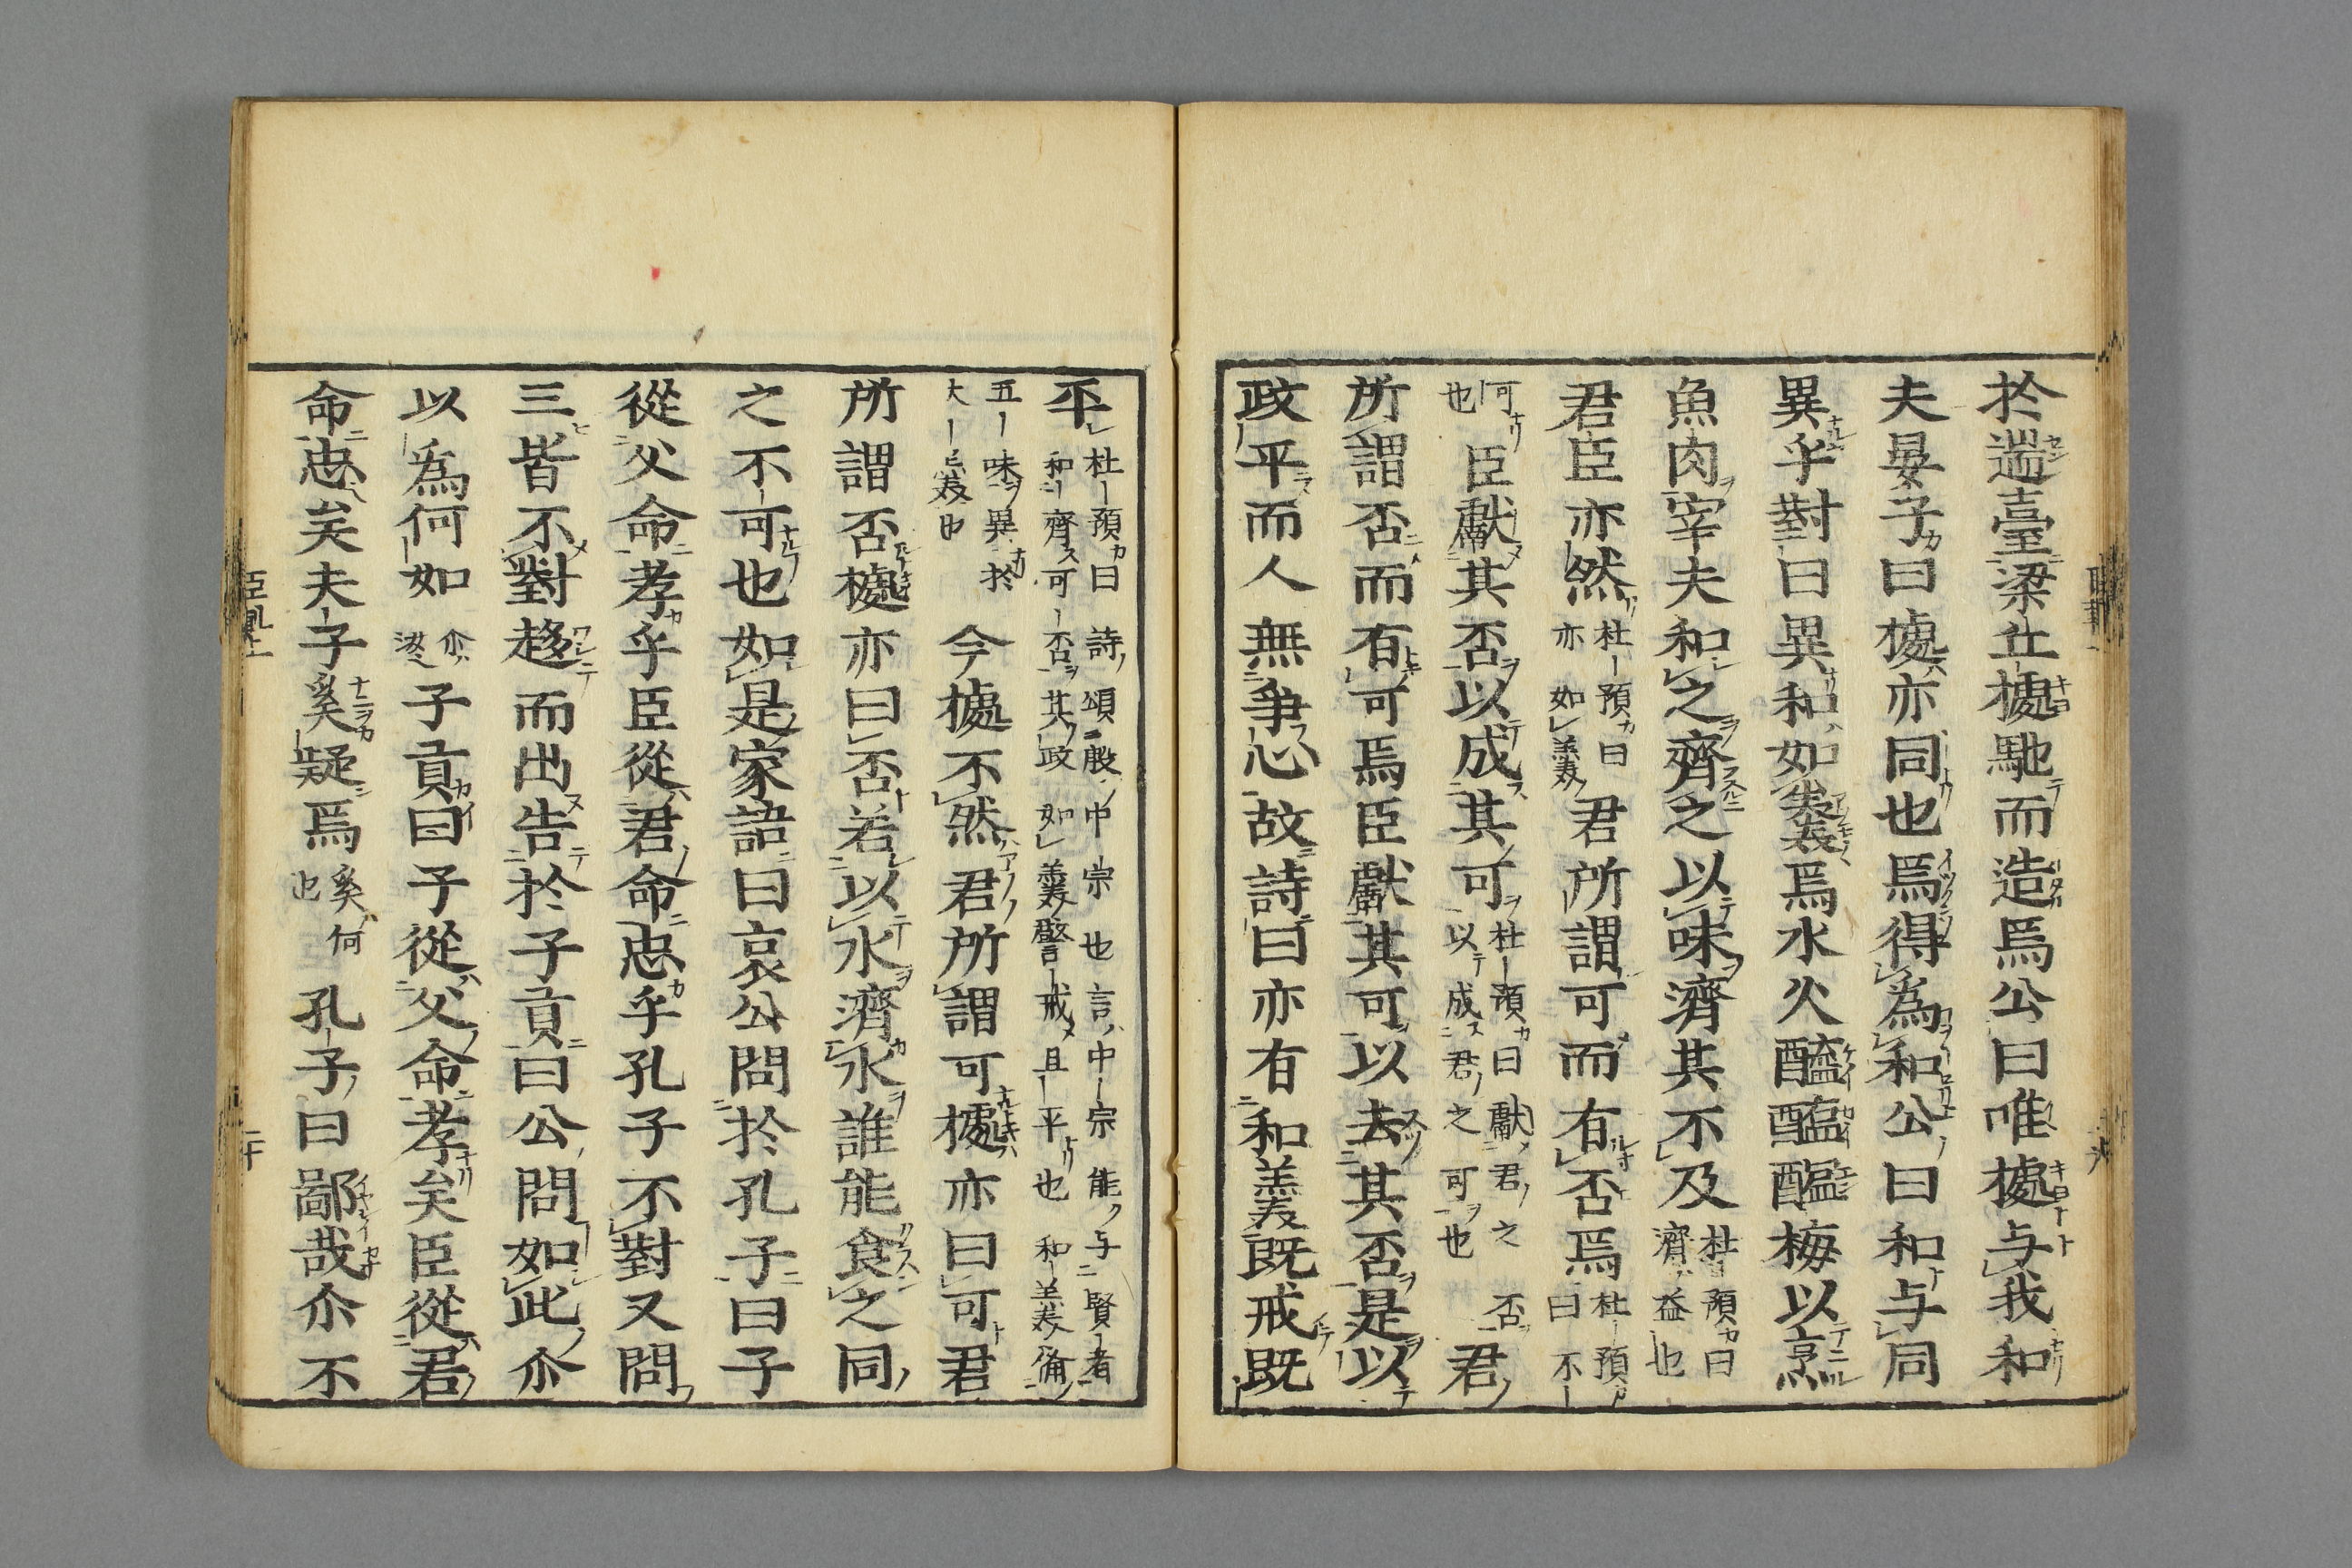 於遄臺梁丘據馳而造焉公曰唯據与我和
夫晏子曰據亦同也焉得為和公曰和与同
異乎對曰異和如羹焉水火醯醢醢梅以烹
魚肉宰夫和之齊之以味濟其不及
杜預曰
濟益也
君臣亦然
杜預曰
亦如羹
君所謂可而有否焉
杜預
曰不
可
也
臣獻其否以成其可
杜預曰獻君之否
以成君之可也
君
所謂否而有可焉臣獻其可以去其否是以
政平而人無爭心故詩曰亦有和羹既戒既
平
杜預曰詩頌殷中宗也言中宗能与賢者
和齊可否其政如羹警戒且平也和羹備
五味異於
大羹也
今據不然君所謂可據亦曰可君
所謂否據亦曰否若以水濟水誰能食之同
之不可也如是家語曰哀公問於孔子曰子
從父命孝乎臣從君命忠乎孔子不對又問
三皆不對趍而出告於子貢曰公問如此尒
以為何如
尒
汝
子貢曰子從父命孝矣臣從君
命忠矣夫子奚疑焉
奚何
也
孔子曰鄙哉尒不
臣軌上
二十